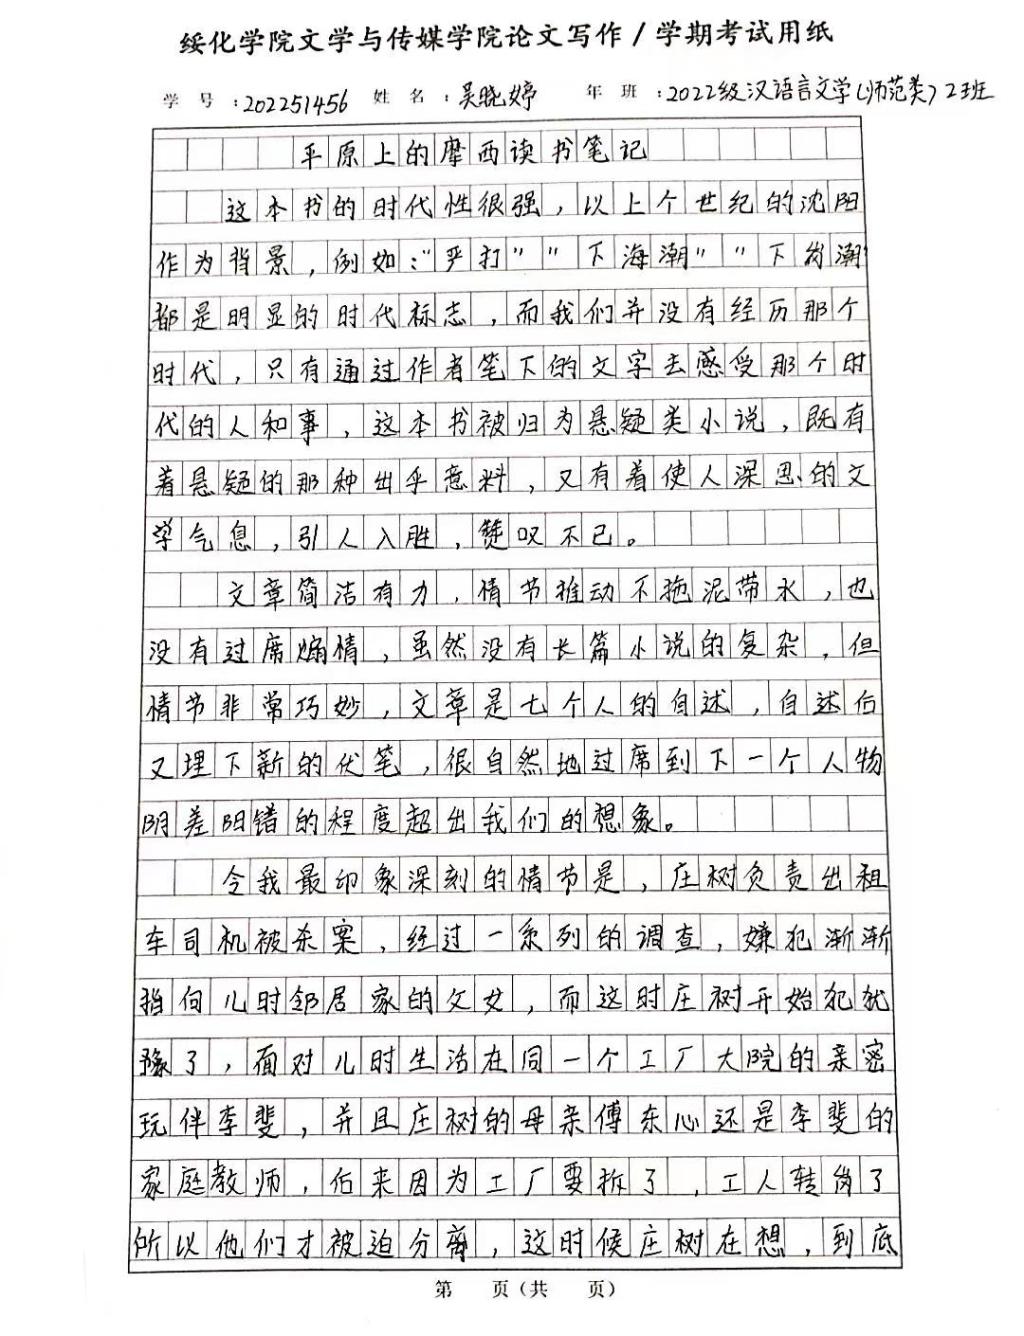 绥化学院文学与传媒学院论文写作/学期考试用纸
学 号:202251456 姓 名:吴晓婷 年 班:2022级汉语言文学(师范类)2班
平原上的摩西读书笔记
这本书的时代性很强,以上个世纪的沈阳
作为背景,例如:“严打”“下海潮”“下岗潮”
都是明显的时代标志,而我们并没有经历那个
时代,只有通过作者笔下的文字去感受那个时
代的人和事,这本书被归为悬疑类小说,既有
着悬疑的那种出乎意料,又有着使人深思的文
学气息,引人入胜,赞叹不已。
文章简洁有力,情节推动不拖泥带水,也
没有过席煽情,虽然没有长篇小说的复杂,但
情节非常巧妙,文章是七个人的自述,自述后
又埋下新的伏笔,很自然地过席到下一个人物
阴差阳错的程度超出我们的想象。
令我最印象深刻的情节是,庄树负责出租
车司机被杀案,经过一系列的调查,嫌犯渐渐
指向儿时邻居家的父女,而这时庄树开始犯犹
豫了,面对儿时生活在同一个工厂大院的亲密
玩伴李斐,并且庄树的母亲傅东心还是李斐的
家庭教师,后来因为工厂要拆了,工人转岗了
所以他们才被迫分离,这时候庄树在想,到底
第 页(共 页)